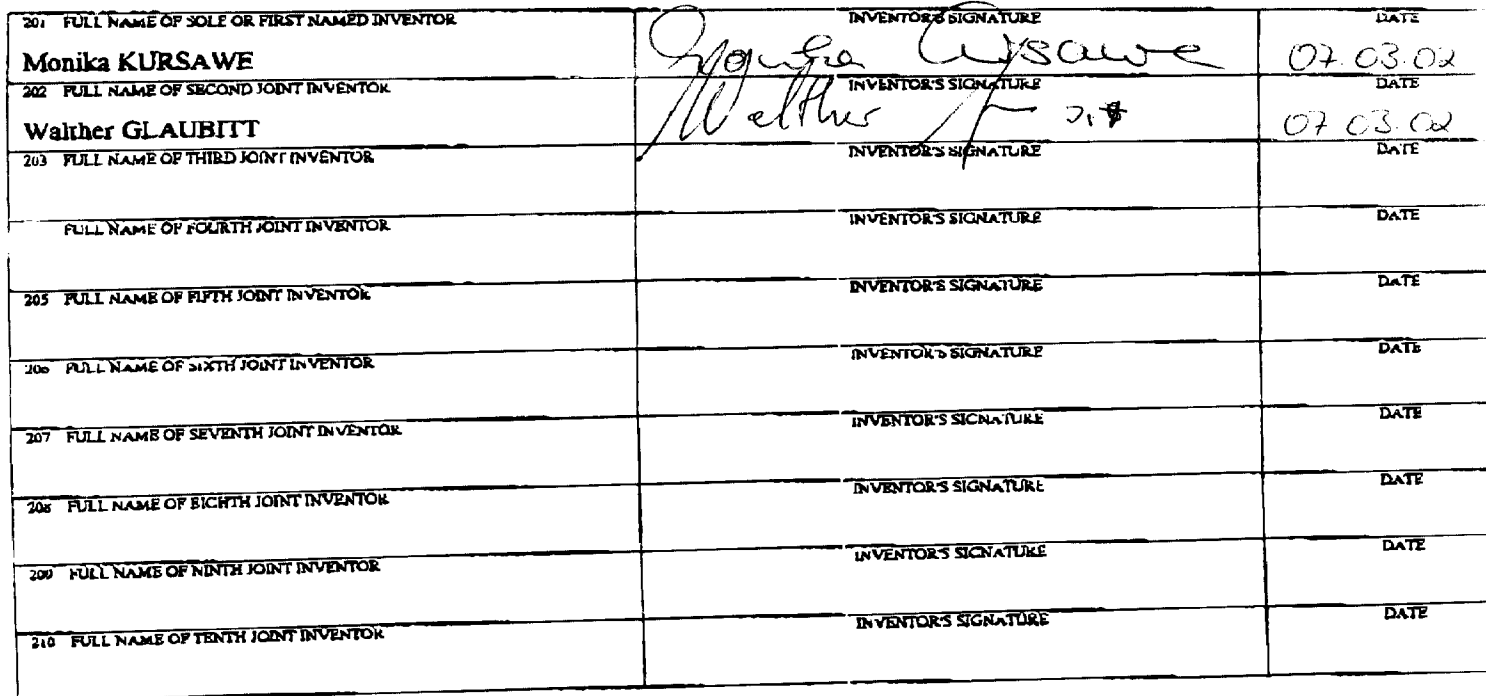 201 FULL NAME OF SOLE OR FIRST NAMED INVENTOR INVENTOR'S SIGNATURE DATE
Monika KURSAWE Monika Kursawe 07.03.02
202 FULL NAME OF SECOND JOINT INVENTOR INVENTOR'S SIGNATURE DATE
Walther GLAUBITT Walther 07.03.02
203 FULL NAME OF THIRD JOINT INVENTOR INVENTOR'S SIGNATURE DATE
FULL NAME OF FOURTH JOINT INVENTOR INVENTOR'S SIGNATURE DATE
205 FULL NAME OF FIFTH JOINT INVENTOR INVENTOR'S SIGNATURE DATE
206 FULL NAME OF SIXTH JOINT INVENTOR INVENTOR'S SIGNATURE DATE
207 FULL NAME OF SEVENTH JOINT INVENTOR INVENTOR'S SIGNATURE DATE
208 FULL NAME OF EIGHTH JOINT INVENTOR INVENTOR'S SIGNATURE DATE
209 FULL NAME OF NINTH JOINT INVENTOR INVENTOR'S SIGNATURE DATE
210 FULL NAME OF TENTH JOINT INVENTOR INVENTOR'S SIGNATURE DATE